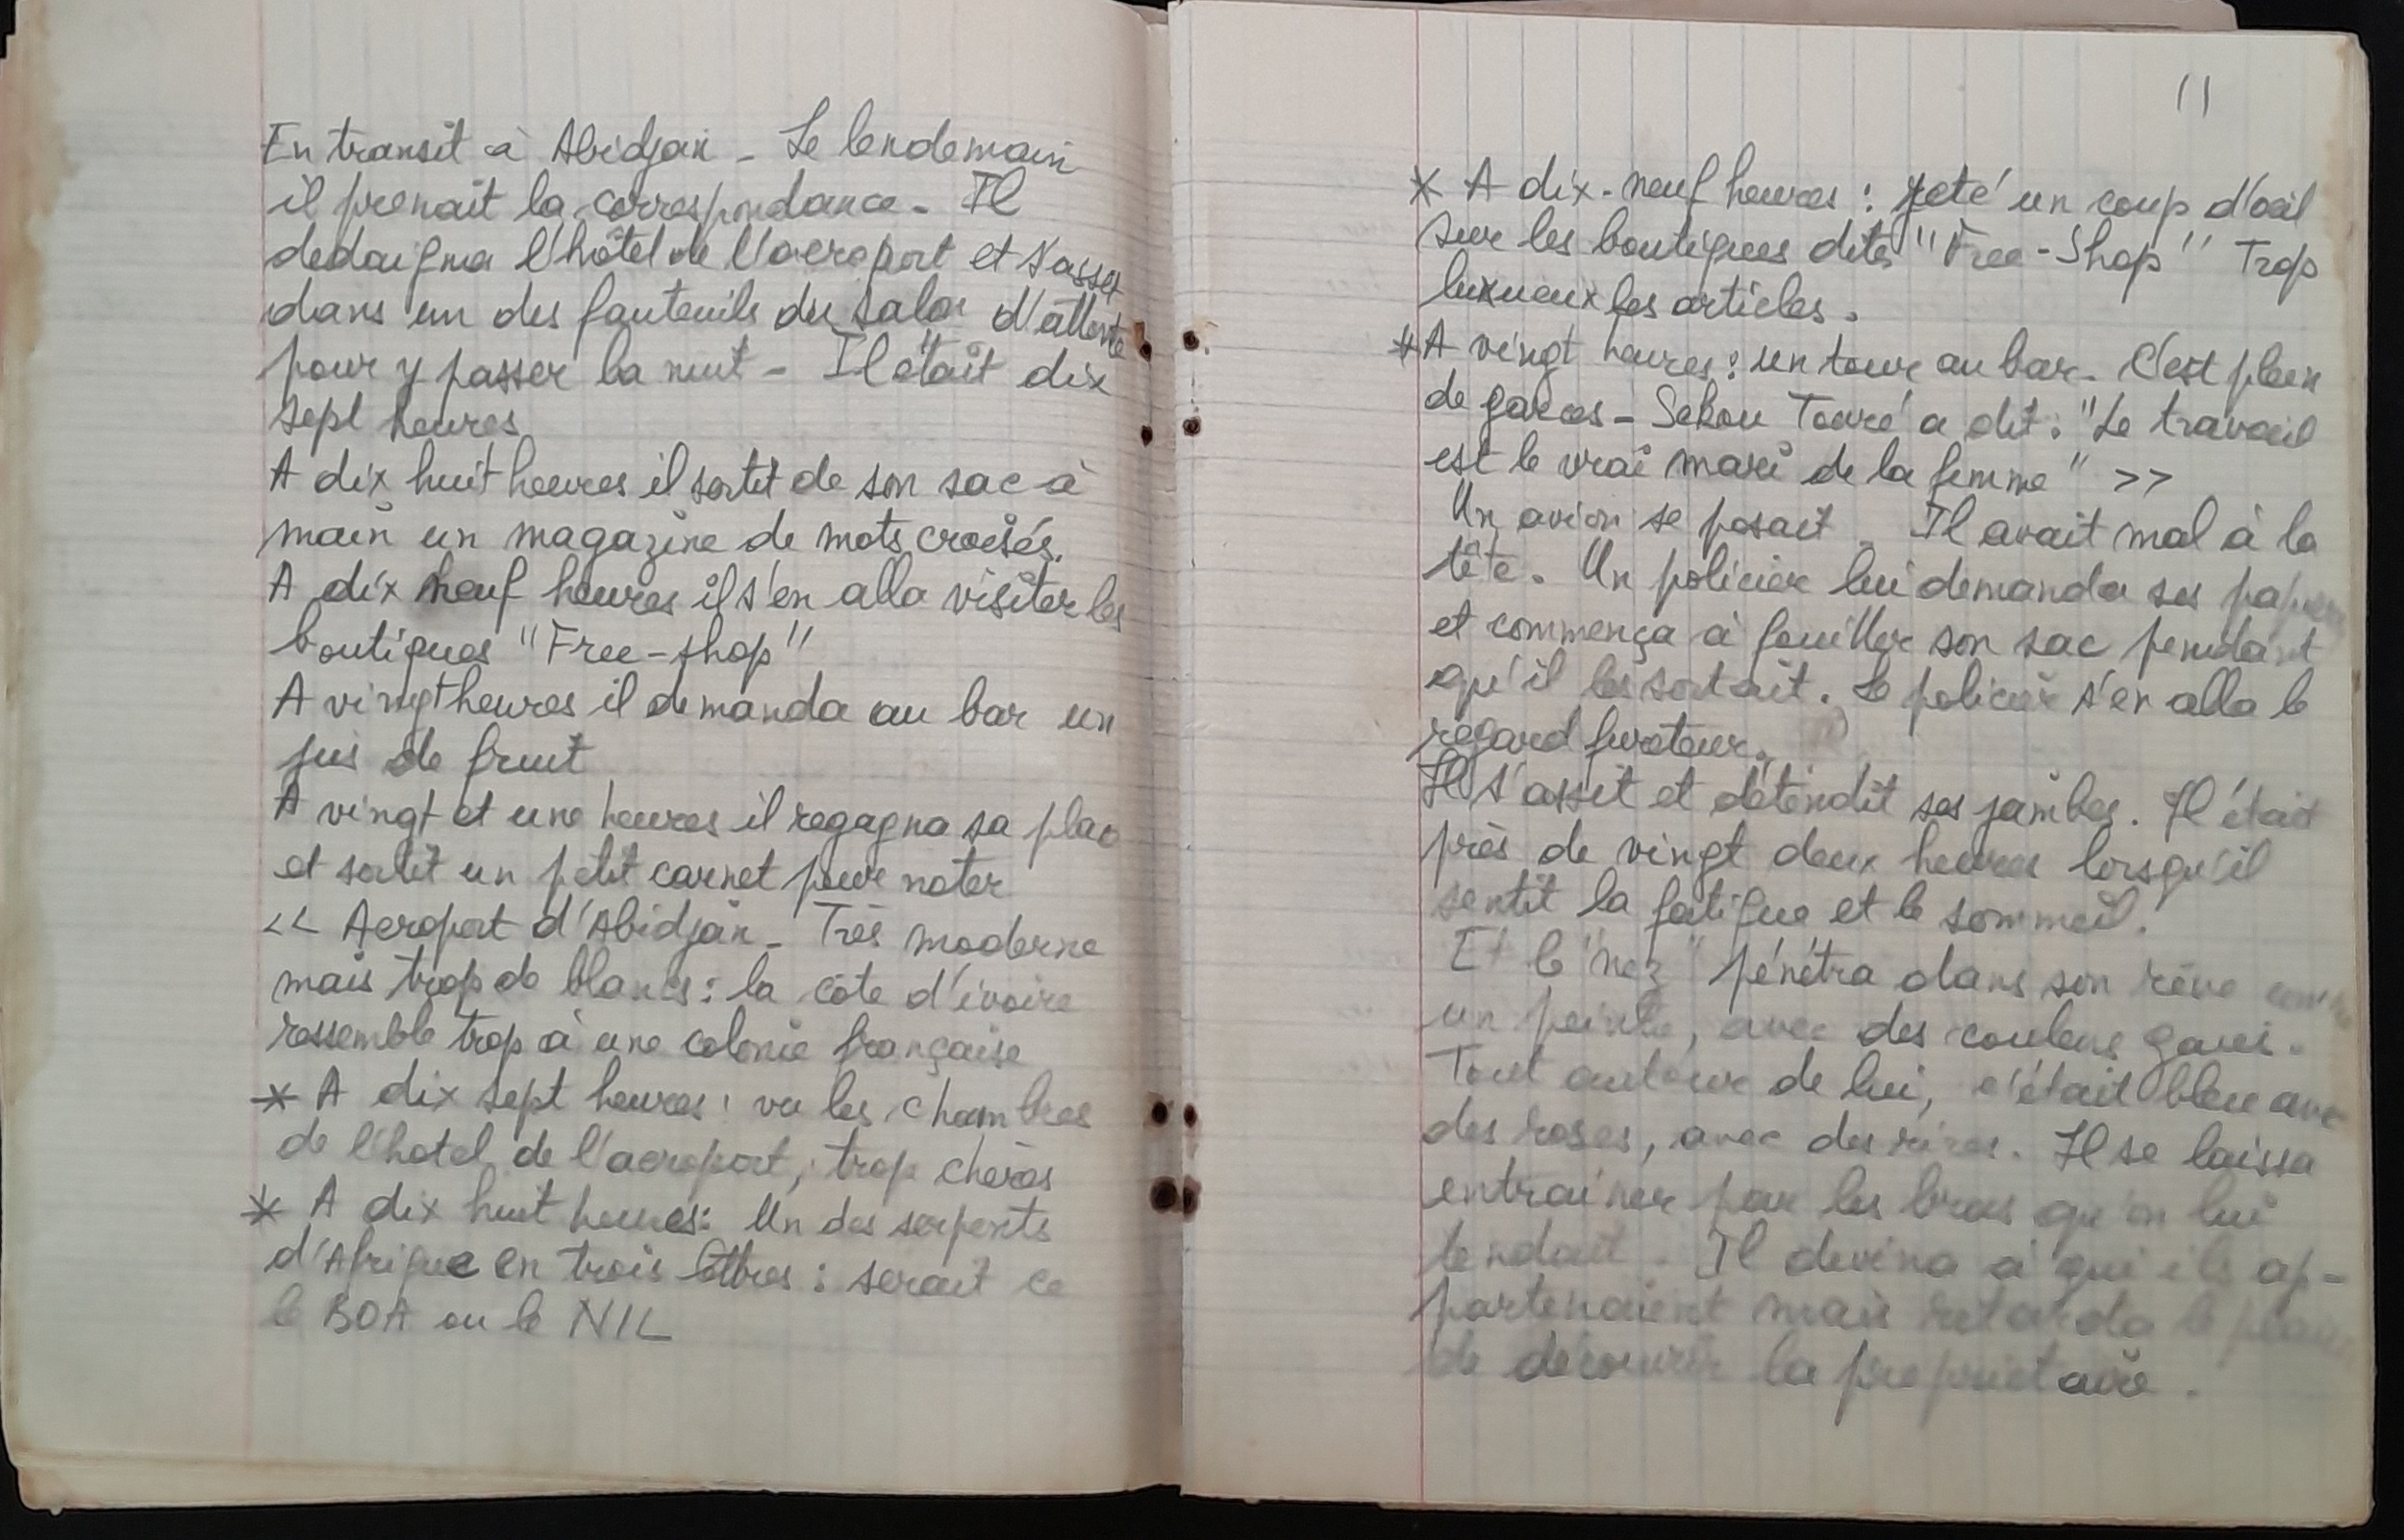 En transit à Abidjan - Le lendemain
il prenait la correspondance - Il
dedaigna l'hôtel de l'aeroport et s'assit
dans un des fauteuils du salon d'attente
pour y passer la nuit - Il était dix
sept heures
A dix huit heures il sortit de son sac à
main un magazine de mots croisés.
A dix neuf heures il s'en alla visiter les
boutiques "Free-shop"
A vingt heures il demanda au bar un
jus de fruit
A vingt et une heures il regagna sa place
et sortit un petit carnet pour noter
<< Aeroport d'Abidjan - Très moderne
mais trop de blancs : la côte d'ivoire
ressemble trop à une colonie française
* A dix sept heures : vu les chambres
de l'hotel de l'aeroport, trop chères
* A dix huit heures : Un des serpents
d'Afrique en trois lettres : serait ce
le BOA ou le NIL
11
* A dix-neuf heures : jeté un coup d'oeil
sur les boutiques dites "Free-Shop" Trop
luxueux les articles.
* A vingt heures : un tour au bar - C'est plein
de garces - Sekou Touré a dit : "Le travail
est le vrai mari de la femme" >>
Un avion se posait - Il avait mal à la
tête. Un policier lui demanda ses papiers
et commença à fouiller son sac pendant
qu'il les sortait. Le policier s'en alla le
regard fureteur.
Il s'assit et détendit ses jambes. Il était
près de vingt deux heures lorsqu'il
sentit la fatigue et le sommeil.
Et le "nez" pénétra dans son rêve comme
un peintre, avec des couleurs gaies.
Tout autour de lui, c'était bleu avec
des roses, avec des rires. Il se laissa
entraîner par les bras qu'on lui
tendait. Il devina à qui ils ap-
partenaient mais retarda le plaisir
de découvrir la propriétaire.